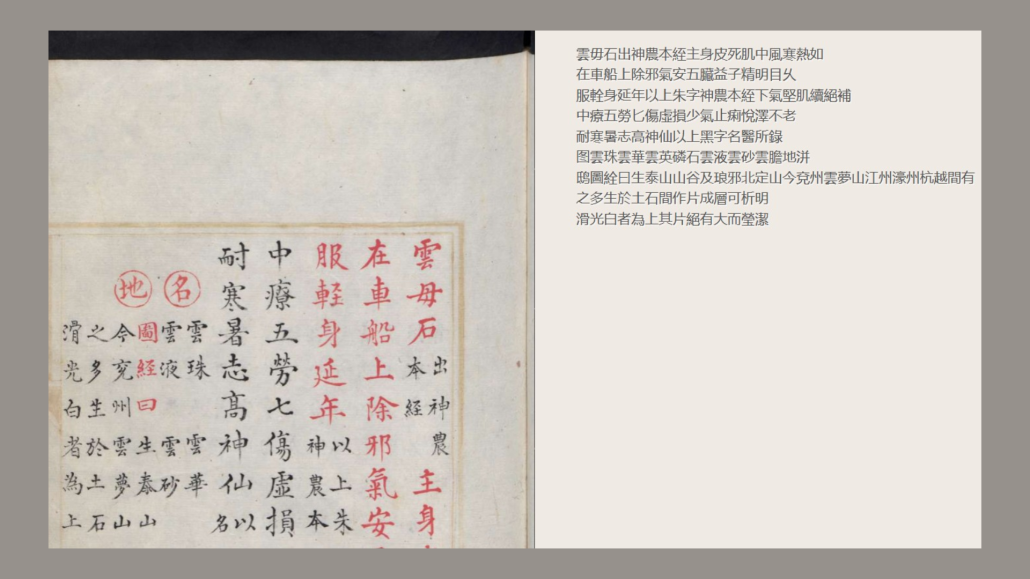 雲母石出神農本經主身
在車船上除邪氣安
服軽身延年以上朱神農本
中療五勞七傷虛損
耐寒暑志髙神仙以名
名雲珠雲華
雲液雲砂
地圖経曰生泰山
今兖州雲夢山
之多生於土石
滑光白者為上
雲毋石出神農本絰主身皮死肌中風寒熱如
在車船上除邪氣安五臟益子精明目乆
服輇身延年以上朱字神農本絰下氣堅肌續絕補
中療五勞匕傷虛損少氣止痢悅澤不老
耐寒暑志高神仙以上黑字名醫所錄
图雲珠雲華雲英磷石雲液雲砂雲膽地洴
鴟圖絟日生泰山山谷及琅邪北定山今兗州雲夢山江州濠州杭越間有
之多生於土石間作片成層可析明
滑光白者為上其片絕有大而瑩潔